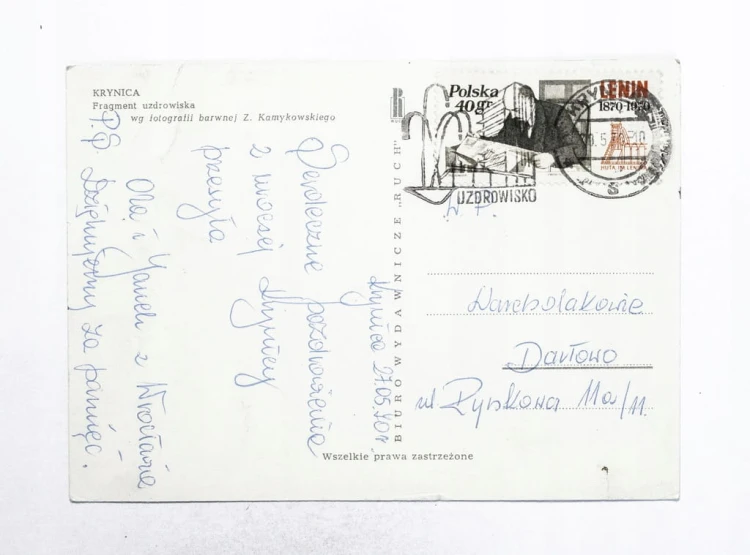 KRYNICA
Fragment uzdrowiska
wg fotografii barwnej Z. Kamykowskiego
Polska
40 gr
LENIN
1870-1970
HUTA IM. LENINA
UZDROWISKO
BIURO WYDAWNICZE „RUCH"
Krynica 27.05.70r.
Serdeczne pozdrowienia
z uroczej Krynicy
przesyła
Ola i Janek z Wrocławia
P.S. Dziękujemy za pamięć.
W P.
Darłowo
ul Rynkowa 11a/11.
Wszelkie prawa zastrzeżone